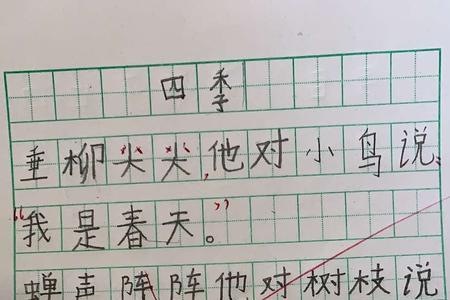 四季
垂柳尖尖，他对小鸟说、
“我是春天。”
蝉声阵阵他对树枝说